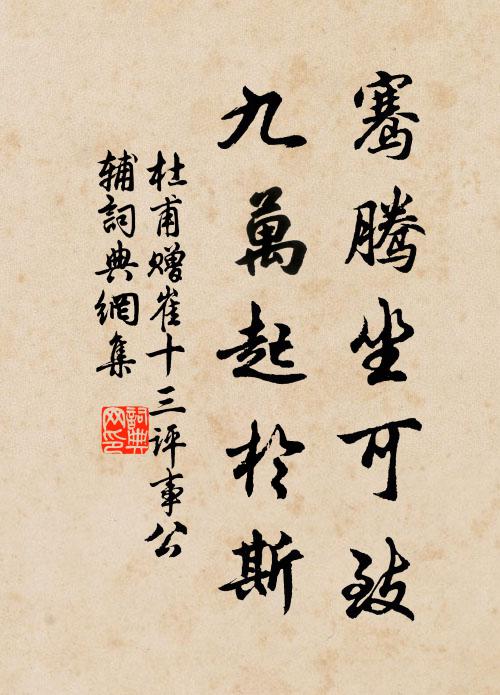 騫腾坐可致
九萬起於斯
杜甫赠崔十三评事公
辅詞典網集
詞典网印